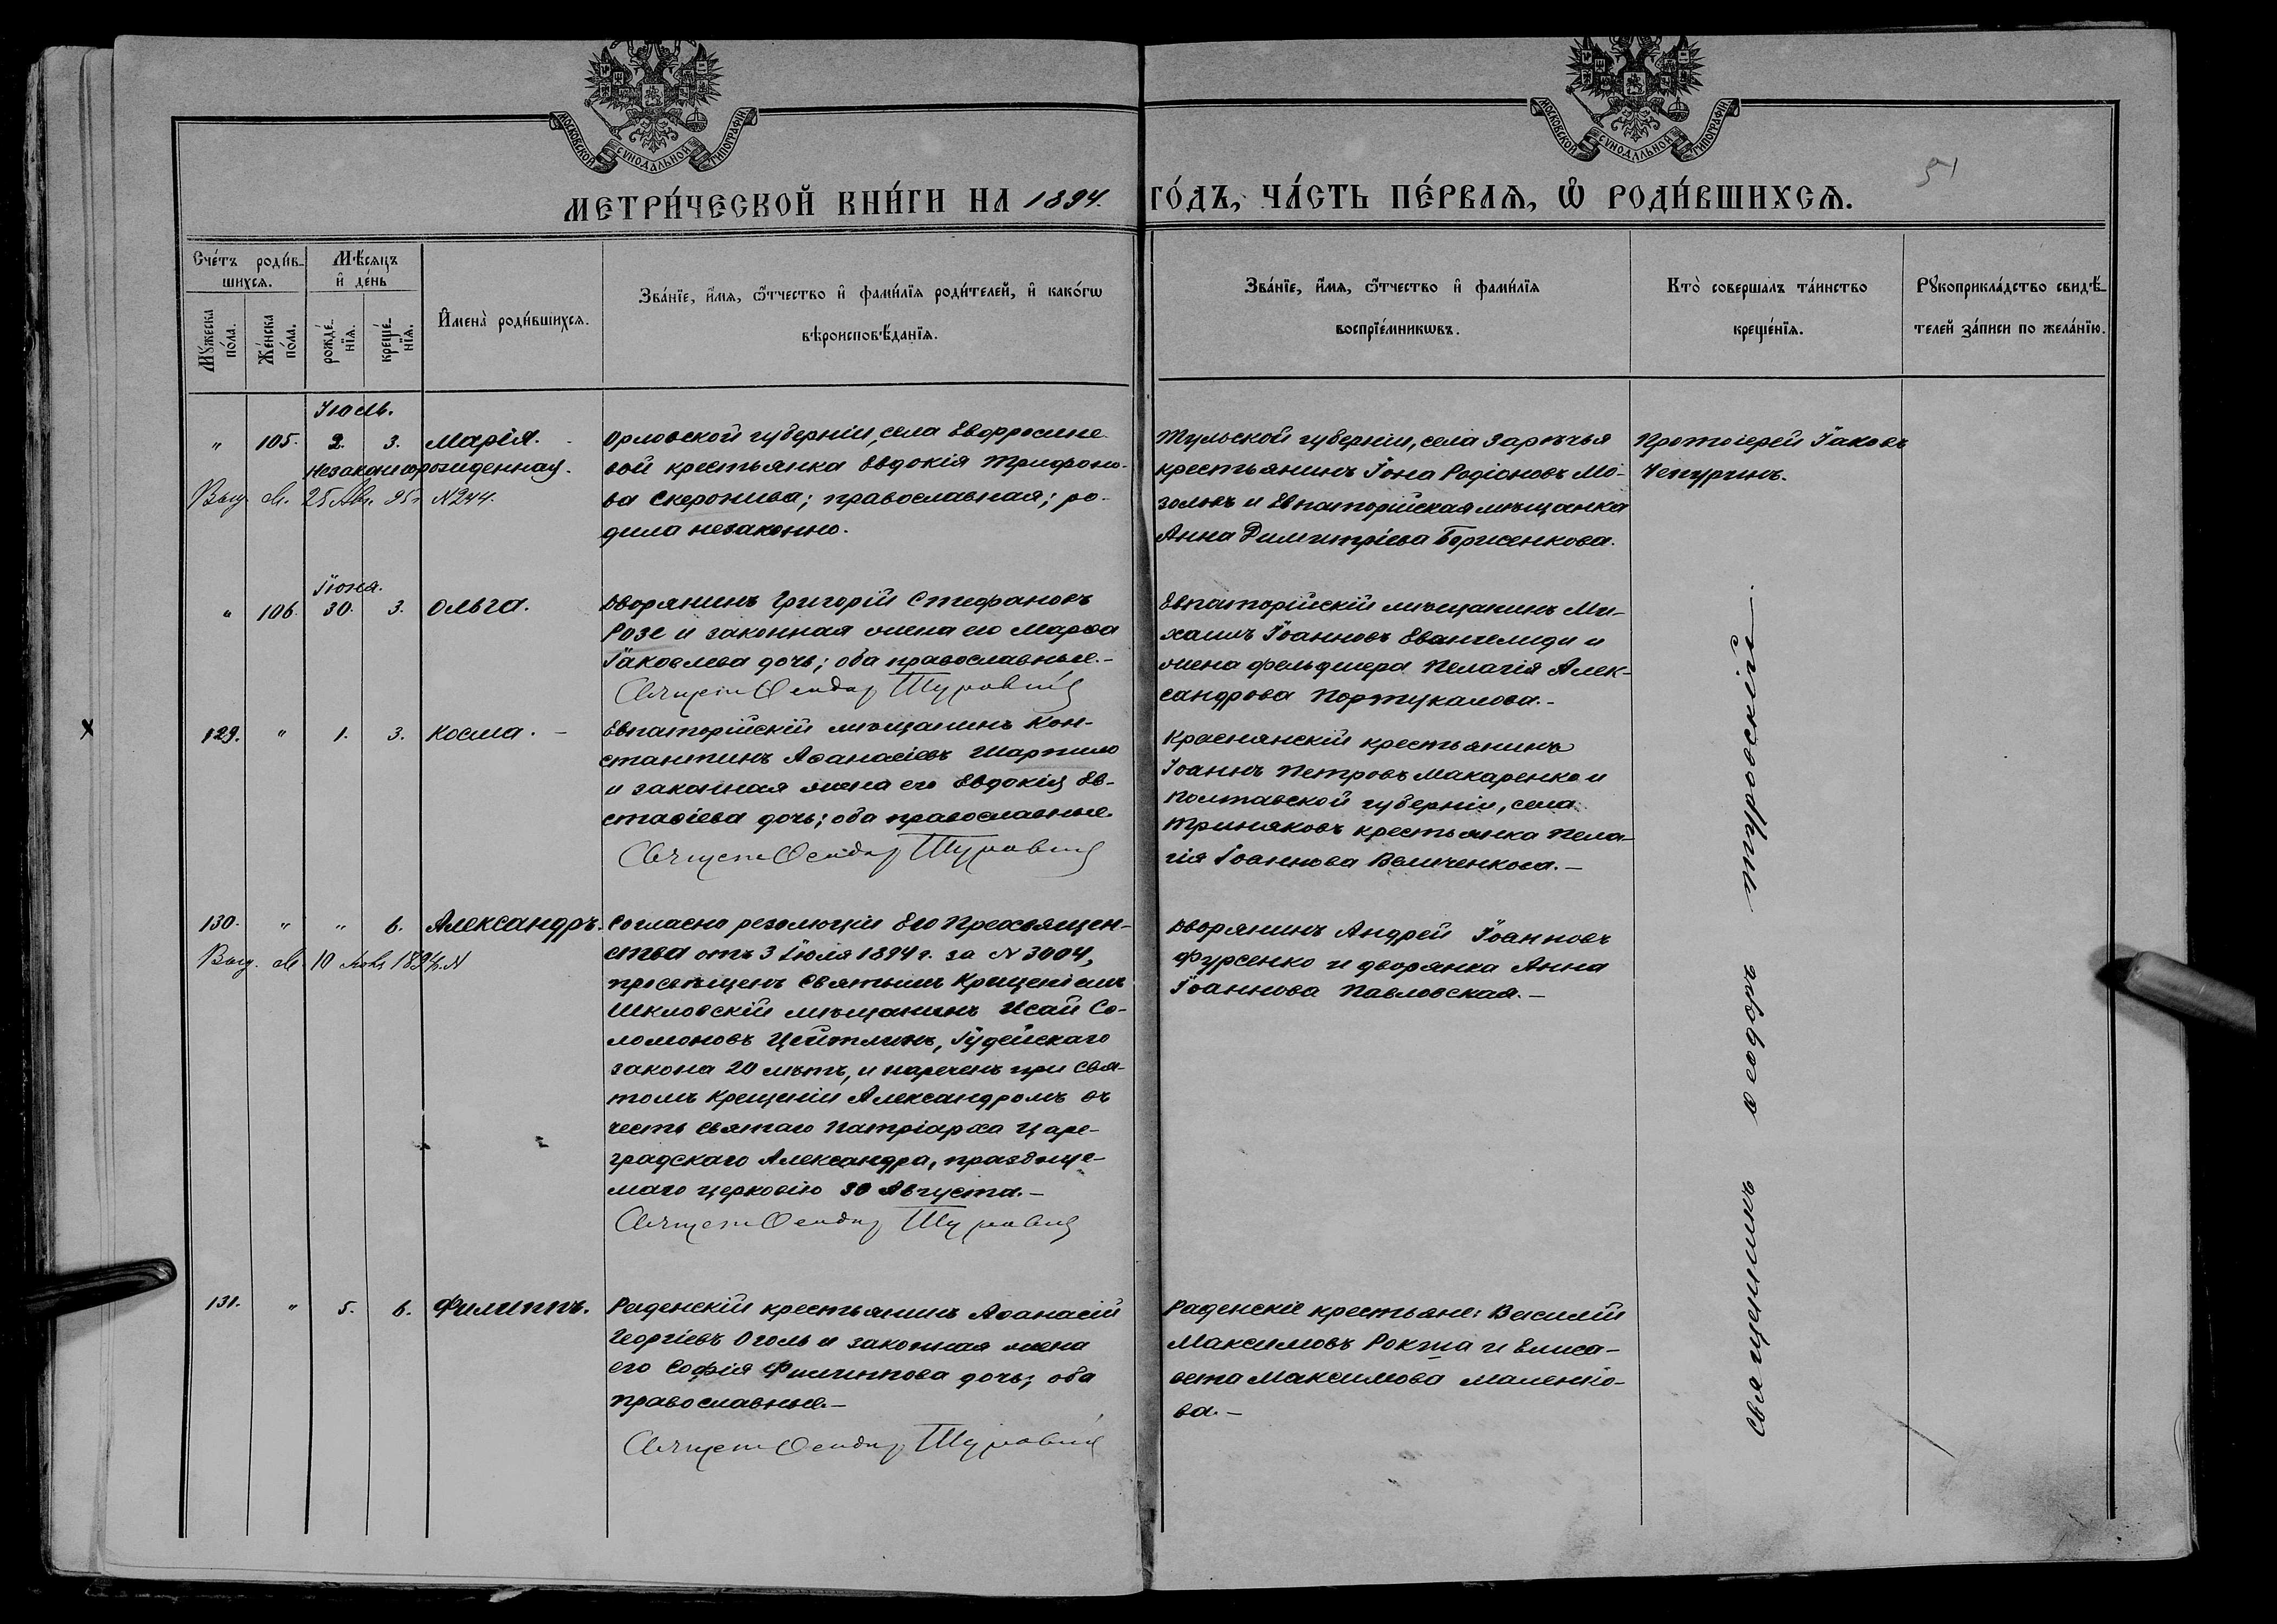 МОСКОВСКОЙ СѴНОДАЛЬНОЙ ТИПОГРАФІИ
МОСКОВСКОЙ СѴНОДАЛЬНОЙ ТИПОГРАФІИ
51
МЕТРИ́ЧЕСКОЙ КНИ́ГИ НА 1894. ГО́ДЪ, ЧА́СТЬ ПЕ́РВАѦ, Ѽ РОДИ́ВШИХСѦ.
Сче́тъ роди́в-
шихсѧ.
Мꙋ́жеска по́ла.
Же́нска по́ла.
Мѣ́сяцъ
и҆ де́нь
рожде́-
нїѧ.
креще́-
нїѧ.
И҆мена̀ роди́вшихсѧ.
Зва́нїе, и҆́мѧ, ѻ҆́тчество и҆ фами́лїѧ роди́телей, и҆ како́гѡ
вѣроисповѣ́данїѧ.
Зва́нїе, и҆́мѧ, ѻ҆́тчество и҆ фами́лїѧ
воспрїе́мникѡвъ.
Кто̀ совершалъ та́инство
креще́нїѧ.
Рꙋкоприкла́дство свидѣ́-
телей за́писи по жела́нїю.
Іюль.
" 105. 2. 3. Марія.
незаконнорожденная.
Выд. М. 25 Авг. 95 г. N 244.
Орловской губерніи, села Еворросине
вой крестьянка Евдокія Трифоно-
ва ; православная; ро-
дила незаконно.
Тульской губерніи, села Заречья
крестьянинъ Іона Родіоновъ Мо-
золовъ и Евпаторійская мѣщанка
Анна Димитріева Борисенкова.
Протоіерей Іаковъ
Чепуринъ.
Іюня.
" 106. 30. 3. Ольга.
Дворянинъ Григорій Стефановъ
Розе и законная жена его Марѳа
Іаковлева дочь; оба православные.-
Священ. Ѳеодоръ Туровскій
Евпаторійскій мѣщанинъ Ми-
хаилъ Іоанновъ Евангелиди и
жена фельдшера Пелагія Алек-
сандрова Портукалова.-
129. " 1. 3. Косма. -
Евпаторійскій мѣщанинъ Кон-
стантинъ Аѳанасіевъ Шартило
и законная жена его Евдокія Ев-
стаѳіева дочь; оба православные.
Священ. Ѳеодоръ Туровскій
Краснянскій крестьянинъ
Іоаннъ Петровъ Макаренко и
Полтавской губерніи, села
крестьянка Пела-
гія Іоаннова Величенкова.-
130. " " 6. Александръ.
Выд. М. 10 1894 г. N
Согласно резолюціи Его Преосвящен-
ства отъ 3 Іюля 1894 г. за N 3004,
просвѣщенъ Святымъ Крещеніемъ
Шкловскій мѣщанинъ Исай Со-
ломоновъ Цейтлинъ, Іудейскаго
закона 20 лѣтъ, и нареченъ при Свя-
томъ Крещеніи Александромъ въ
честь Святаго Патріарха Царе-
градскаго Александра, празднуе-
маго церковію 30 Августа.-
Священ. Ѳеодоръ Туровскій
Дворянинъ Андрей Іоанновъ
Фурсенко и дворянка Анна
Іоаннова Павловская.-
131. " 5. 6. Филиппъ.
Раденскій крестьянинъ Аѳанасій
Георгіевъ Оголь и законная жена
его Софія Филиппова дочь; оба
православные.-
Священ. Ѳеодоръ Туровскій
Раденскіе крестьяне: Василій
Максимовъ Рокта и Елиса-
вета Максимова Маленко-
ва.-
Священникъ Ѳеодоръ Туровскій.